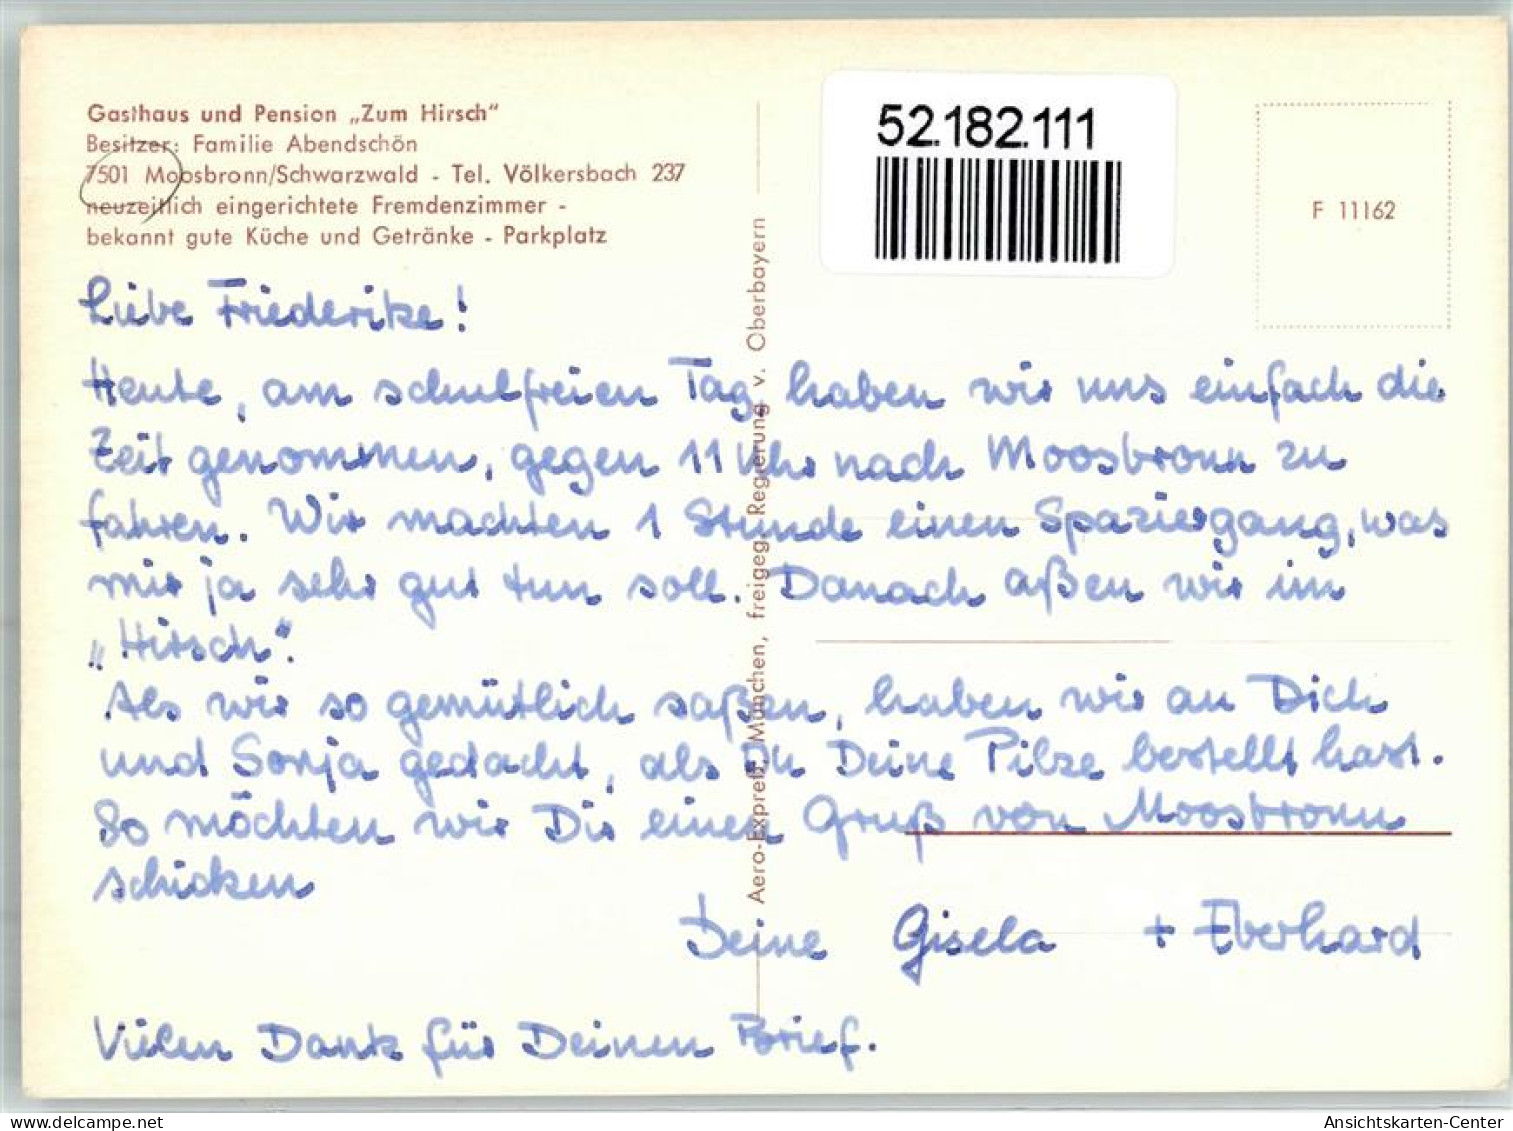 Gasthaus und Pension „Zum Hirsch"
Besitzer: Familie Abendschön
7501 Moosbronn/Schwarzwald - Tel. Völkersbach 237
neuzeitlich eingerichtete Fremdenzimmer -
bekannt gute Küche und Getränke - Parkplatz
52.182.111
F 11162
Aero-Expreß, München, freigeg. Regierung v. Oberbayern
Liebe Friederike!
Heute, am schulfreien Tag, haben wir uns einfach die
Zeit genommen, gegen 11 Uhr nach Moosbronn zu
fahren. Wir machten 1 Stunde einen Spaziergang, was
mir ja sehr gut tun soll. Danach aßen wir im
„Hirsch".
Als wir so gemütlich saßen, haben wir an Dich
und Sonja gedacht, als Du Deine Pilze bestellt hast.
So möchten wir Dir einen Gruß von Moosbronn
schicken
Deine Gisela + Eberhard
Vielen Dank für Deinen Brief.
delcampe.net
Ansichtskarten-Center